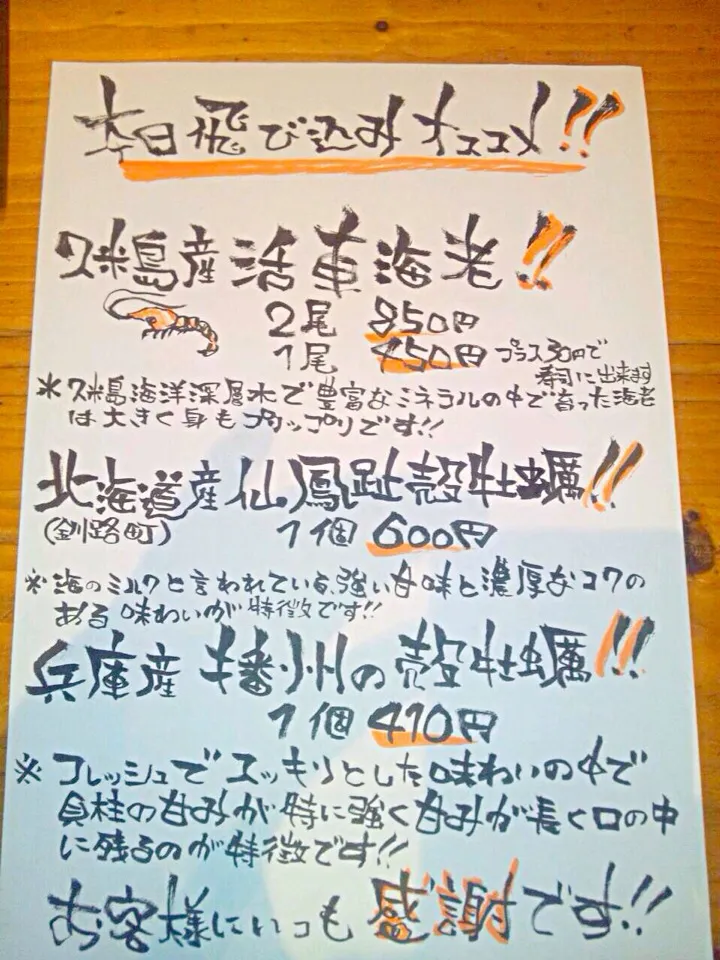 本日飛び込みオススメ!!
久米島産活車海老!!
2尾 850円
1尾 450円 プラス30円で
寿司に出来ます
※久米島海洋深層水で豊富なミネラルの中で育った海老
は大きく身もプリップリです!!
北海道産仙鳳趾殻牡蠣!!
(釧路町) 1個 600円
※海のミルクと言われている、強い甘味と濃厚なコクの
ある味わいが特徴です!!
兵庫産播州の殻牡蠣!!
1個 410円
※フレッシュでスッキリとした味わいの中で
貝柱の甘みが特に強く甘みが長く口の中
に残るのが特徴です!!
お客様にいつも感謝です!!